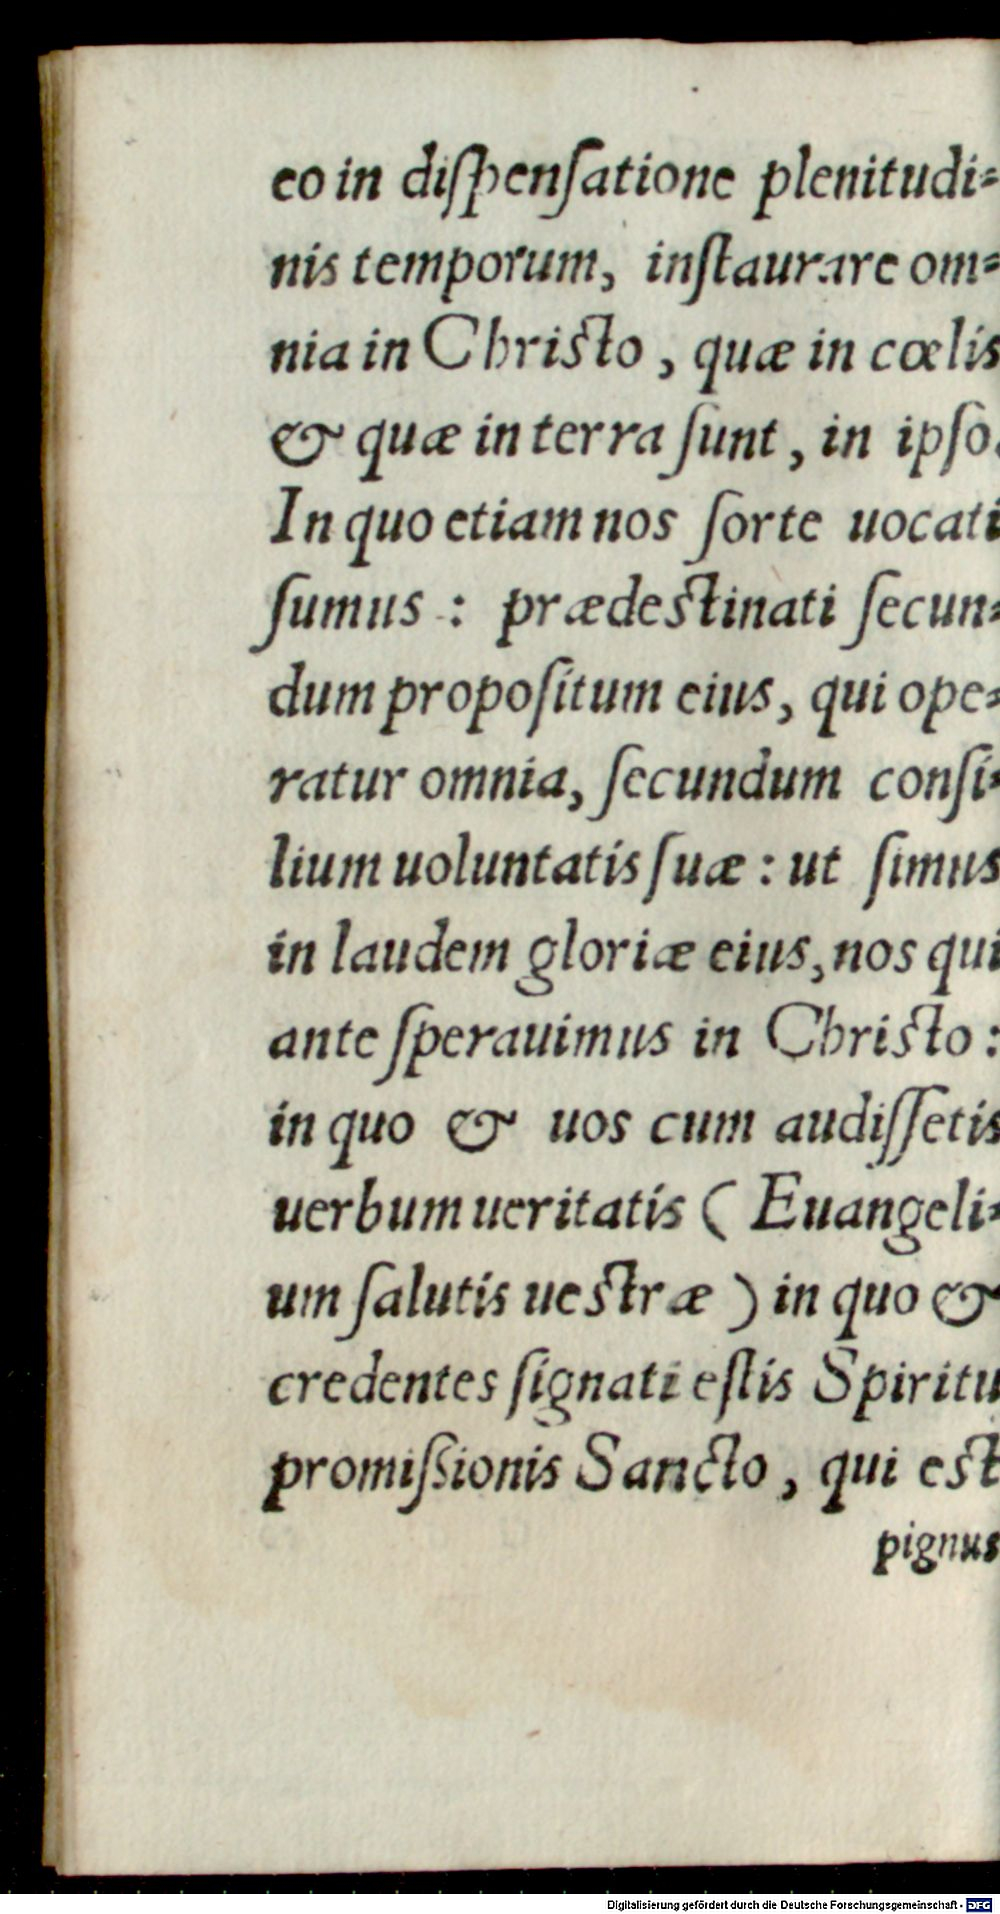 eo in diſpenſatione plenitudi=
nis temporum, inſtaurare om=
nia in Chriſto, quæ in cœlis
& quæ in terra ſunt, in ipſo.
In quo etiam nos ſorte uocati
ſumus : prædeſtinati ſecun=
dum propoſitum eius, qui ope=
ratur omnia, ſecundum conſi=
lium uoluntatis ſuæ : ut ſimus
in laudem gloriæ eius, nos qui
ante ſperauimus in Chriſto :
in quo & uos cum audiſſetis
uerbum ueritatis ( Euangeli=
um ſalutis ueſtræ ) in quo &
credentes ſignati eſtis Spiritu
promiſsionis Sancto, qui eſt
pignus
Digitalisierung gefördert durch die Deutsche Forschungsgemeinschaft - DFG